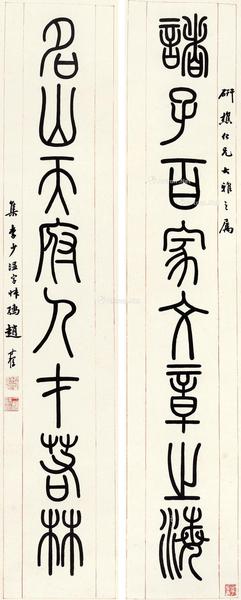 研樵仁兄大雅之屬
諸子百家文章之海
名山天府人才若林
集李少温字